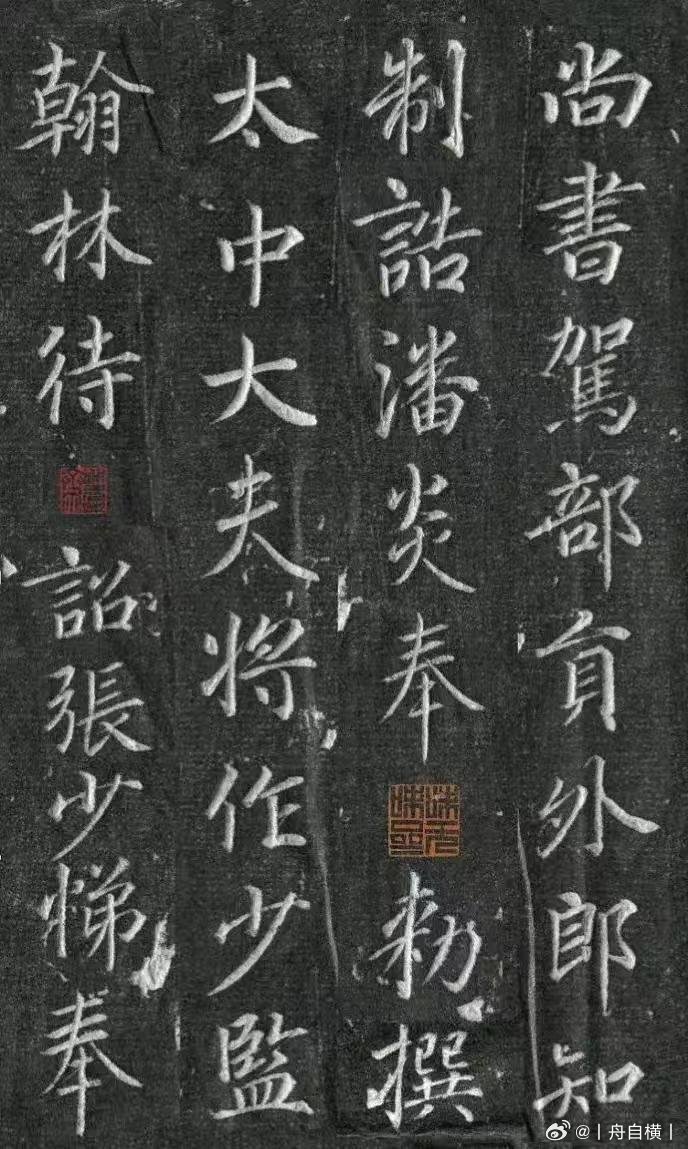 尚書駕部貟外郎知
制誥潘炎奉 勑撰
太中大夫將作少監
翰林待 詔張少悌奉
@丨舟自横丨